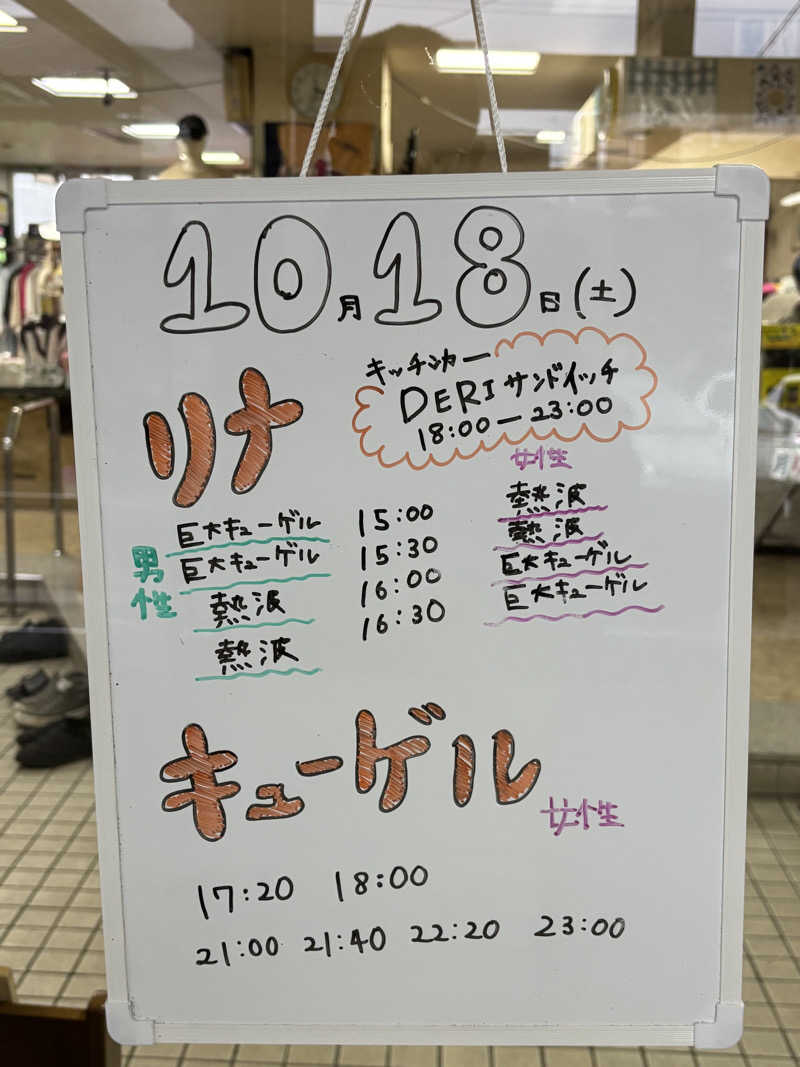 10月18日(土)
キッチンカー
DERIサンドイッチ
18:00ー23:00
リナ
女性
男性
巨大キューゲル 15:00 熱波
巨大キューゲル 15:30 熱波
熱波 16:00 巨大キューゲル
熱波 16:30 巨大キューゲル
キューゲル
女性
17:20 18:00
21:00 21:40 22:20 23:00